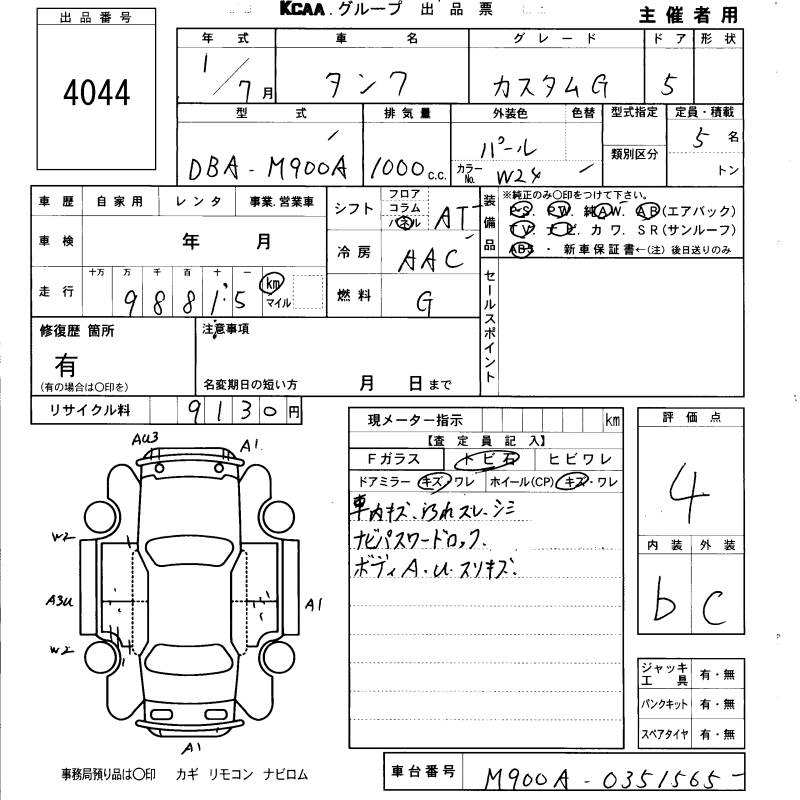 KCAA.グループ 出品票 主催者用
出品番号
4044
年式 車名 グレード ドア 形状
1/7月 タンク カスタムG 5
型式 排気量 外装色 色替 型式指定 定員・積載
DBA-M900A 1000c.c. パール 類別区分 5名
カラーNo. W24 トン
車歴 自家用 レンタ 事業.営業車
シフト フロア コラム パネル AT
装備品 ※純正のみ○印をつけて下さい。
P.S. P.W. 純A.W. A.B(エアバック)
T.V. ナビ. カワ. S.R(サンルーフ)
ABS ・ 新車保証書←(注) 後日送りのみ
車検 年 月
冷房 AAC
走行 十万 万 千 百 十 一
98815 km マイル
燃料 G
セールスポイント
修復歴 箇所
有
(有の場合は○印を)
注意事項
名変期日の短い方 月 日まで
リサイクル料 9130円
現メーター指示 km
【査定員記入】
Fガラス トビ石 ヒビワレ
ドアミラー キズ・ワレ ホイール(CP) キズ・ワレ
車内キズ.汚れスレ.シミ
ナビパスワードロック.
ボディA.U.スリキズ.
評価点
4
内装 外装
b C
AU3 A1
W2
A3U A1
W2
A1
ジャッキ工具 有・無
パンクキット 有・無
スペアタイヤ 有・無
事務局預り品は○印 カギ リモコン ナビロム
車台番号 M900A-0351565